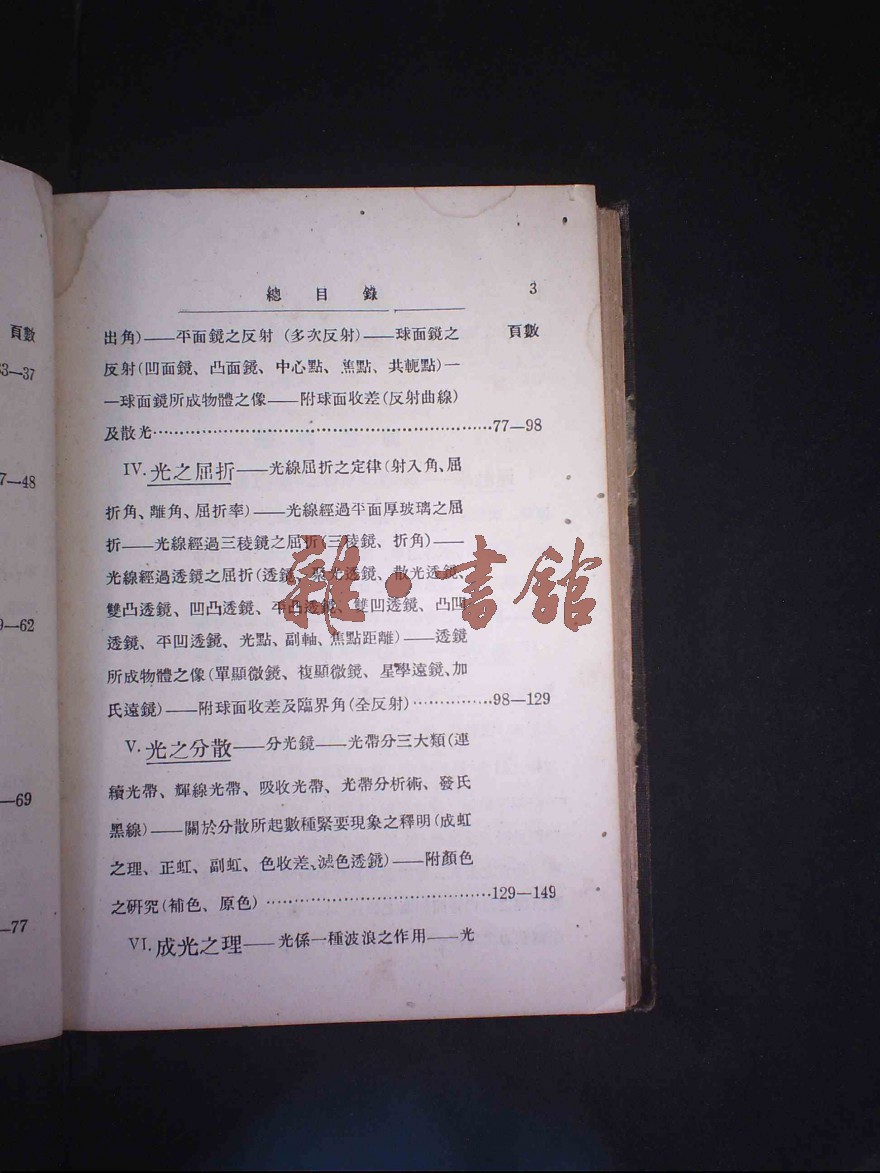 頁數
33—37
7—48
9—62
—69
—77
總目錄 3
出角)——平面鏡之反射 (多次反射)——球面鏡之 頁數
反射(凹面鏡、凸面鏡、中心點、焦點、共軛點)—
—球面鏡所成物體之像——附球面收差(反射曲線)
及散光⋯⋯⋯⋯⋯⋯⋯⋯⋯⋯⋯⋯77—98
IV. 光之屈折——光線屈折之定律(射入角、屈
折角、離角、屈折率)——光線經過平面厚玻璃之屈
折——光線經過三稜鏡之屈折(三稜鏡、折角)——
光線經過透鏡之屈折(透鏡、聚光透鏡、散光透鏡、
雙凸透鏡、凹凸透鏡、平凸透鏡、雙凹透鏡、凸凹
透鏡、平凹透鏡、光點、副軸、焦點距離)——透鏡
所成物體之像(單顯微鏡、複顯微鏡、星學遠鏡、加
氏遠鏡)——附球面收差及臨界角(全反射)⋯⋯⋯98—129
V. 光之分散——分光鏡——光帶分三大類(連
續光帶、輝線光帶、吸收光帶、光帶分析術、發氏
黑線)——關於分散所起數種緊要現象之釋明(成虹
之理、正虹、副虹、色收差、滅色透鏡)——附顏色
之研究(補色、原色)⋯⋯⋯⋯⋯⋯⋯⋯129—149
VI. 成光之理——光係一種波浪之作用——光
雜·書館